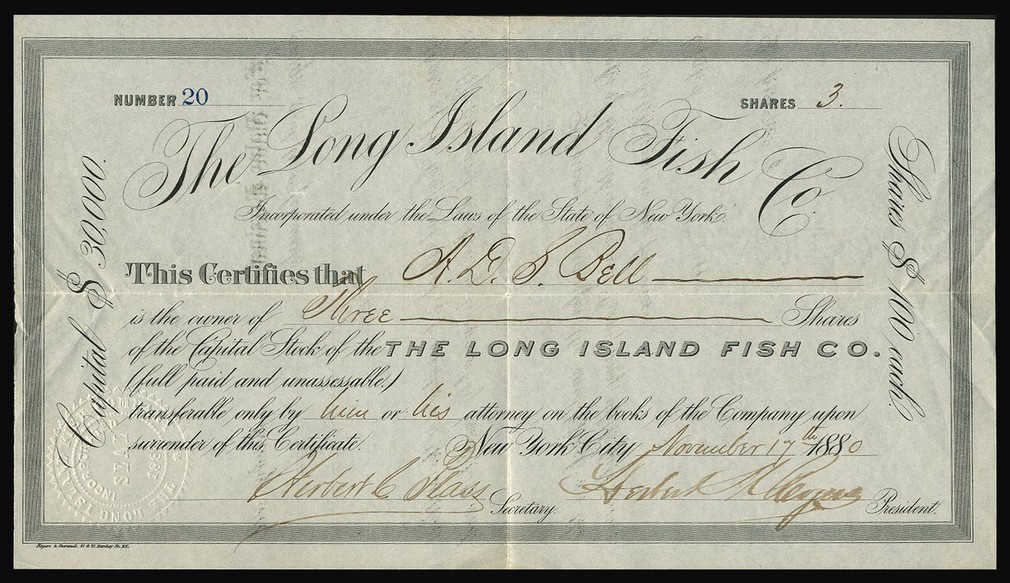 NUMBER 20
SHARES 3.
The Long Island Fish Co.
Incorporated under the Laws of the State of New York.
Capital $ 30,000.
Shares $ 100 each.
This Certifies that A. D. S. Bell
is the owner of Three Shares
of the Capital Stock of the THE LONG ISLAND FISH CO.
(full paid and unassessable.)
transferable only by him or his attorney on the books of the Company upon
surrender of this Certificate. New York City November 17th 1880
Herbert C Secretary.
Herbert President.
SEAL